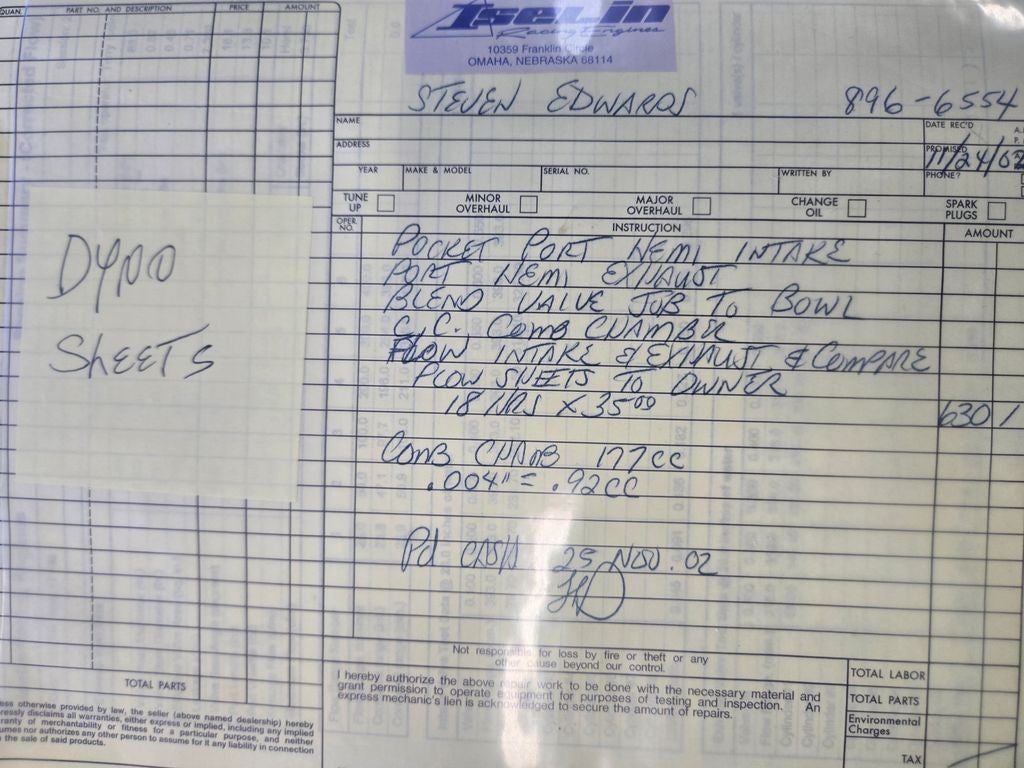 QUAN. PART NO. AND DESCRIPTION PRICE AMOUNT
Iselin
Racing Engines
10359 Franklin Circle
OMAHA, NEBRASKA 68114
STEVEN EDWARDS 896-6554
NAME DATE REC'D
ADDRESS PROMISED
11/24/02
YEAR MAKE & MODEL SERIAL NO. WRITTEN BY PHONE?
TUNE UP MINOR OVERHAUL MAJOR OVERHAUL CHANGE OIL SPARK PLUGS
OPER. NO. INSTRUCTION AMOUNT
POCKET PORT HEMI INTAKE
PORT HEMI EXHAUST
BLEND VALVE JOB TO BOWL
C.C. COMB CHAMBER
FLOW INTAKE & EXHAUST & COMPARE
FLOW SHEETS TO OWNER
18 HRS X 35.00 630
COMB CHAMB 177CC
.004" = .92CC
Pd CASH 25 NOV. 02
DYNO
SHEETS
Not responsible for loss by fire or theft or any
other cause beyond our control.
I hereby authorize the above repair work to be done with the necessary material and
grant permission to operate equipment for purposes of testing and inspection. An
express mechanic's lien is acknowledged to secure the amount of repairs.
TOTAL LABOR
TOTAL PARTS
Environmental
Charges
TAX
TOTAL PARTS
otherwise provided by law, the seller (above named dealership) hereby
disclaims all warranties, either express or implied, including any implied
of merchantability or fitness for a particular purpose, and neither
nor authorizes any other person to assume for it any liability in connection
the sale of said products.